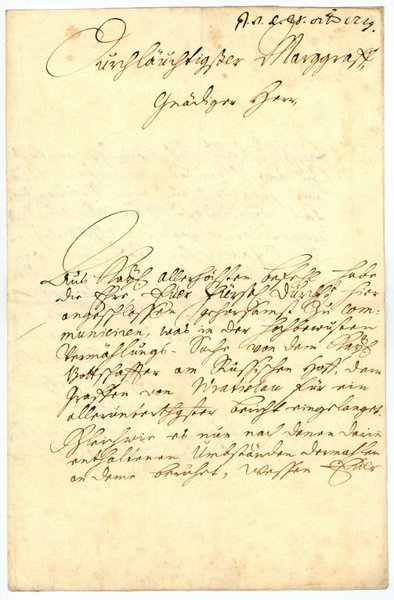 28. octob 1729.
Durchläuchtigster Marggraff,
Gnädiger Herr,
Aus Kayßl. allerhöchsten befehl habe
die Ehre, Euer Fürstl. Durchl. hier
angeschlossen gehorsamst zu com-
municiren, was in der hochbewusten
Vermählungs-Sache von dem Kayßl.
Bottschaffter am Russischen Hoff, dem
Graffen von Wratislau für ein
allerunterthgster bericht eingelanget.
Gleichwie es nun nach denen darin
enthaltenen Umbständen dermahlen
an deme beruhet, wessen Euer